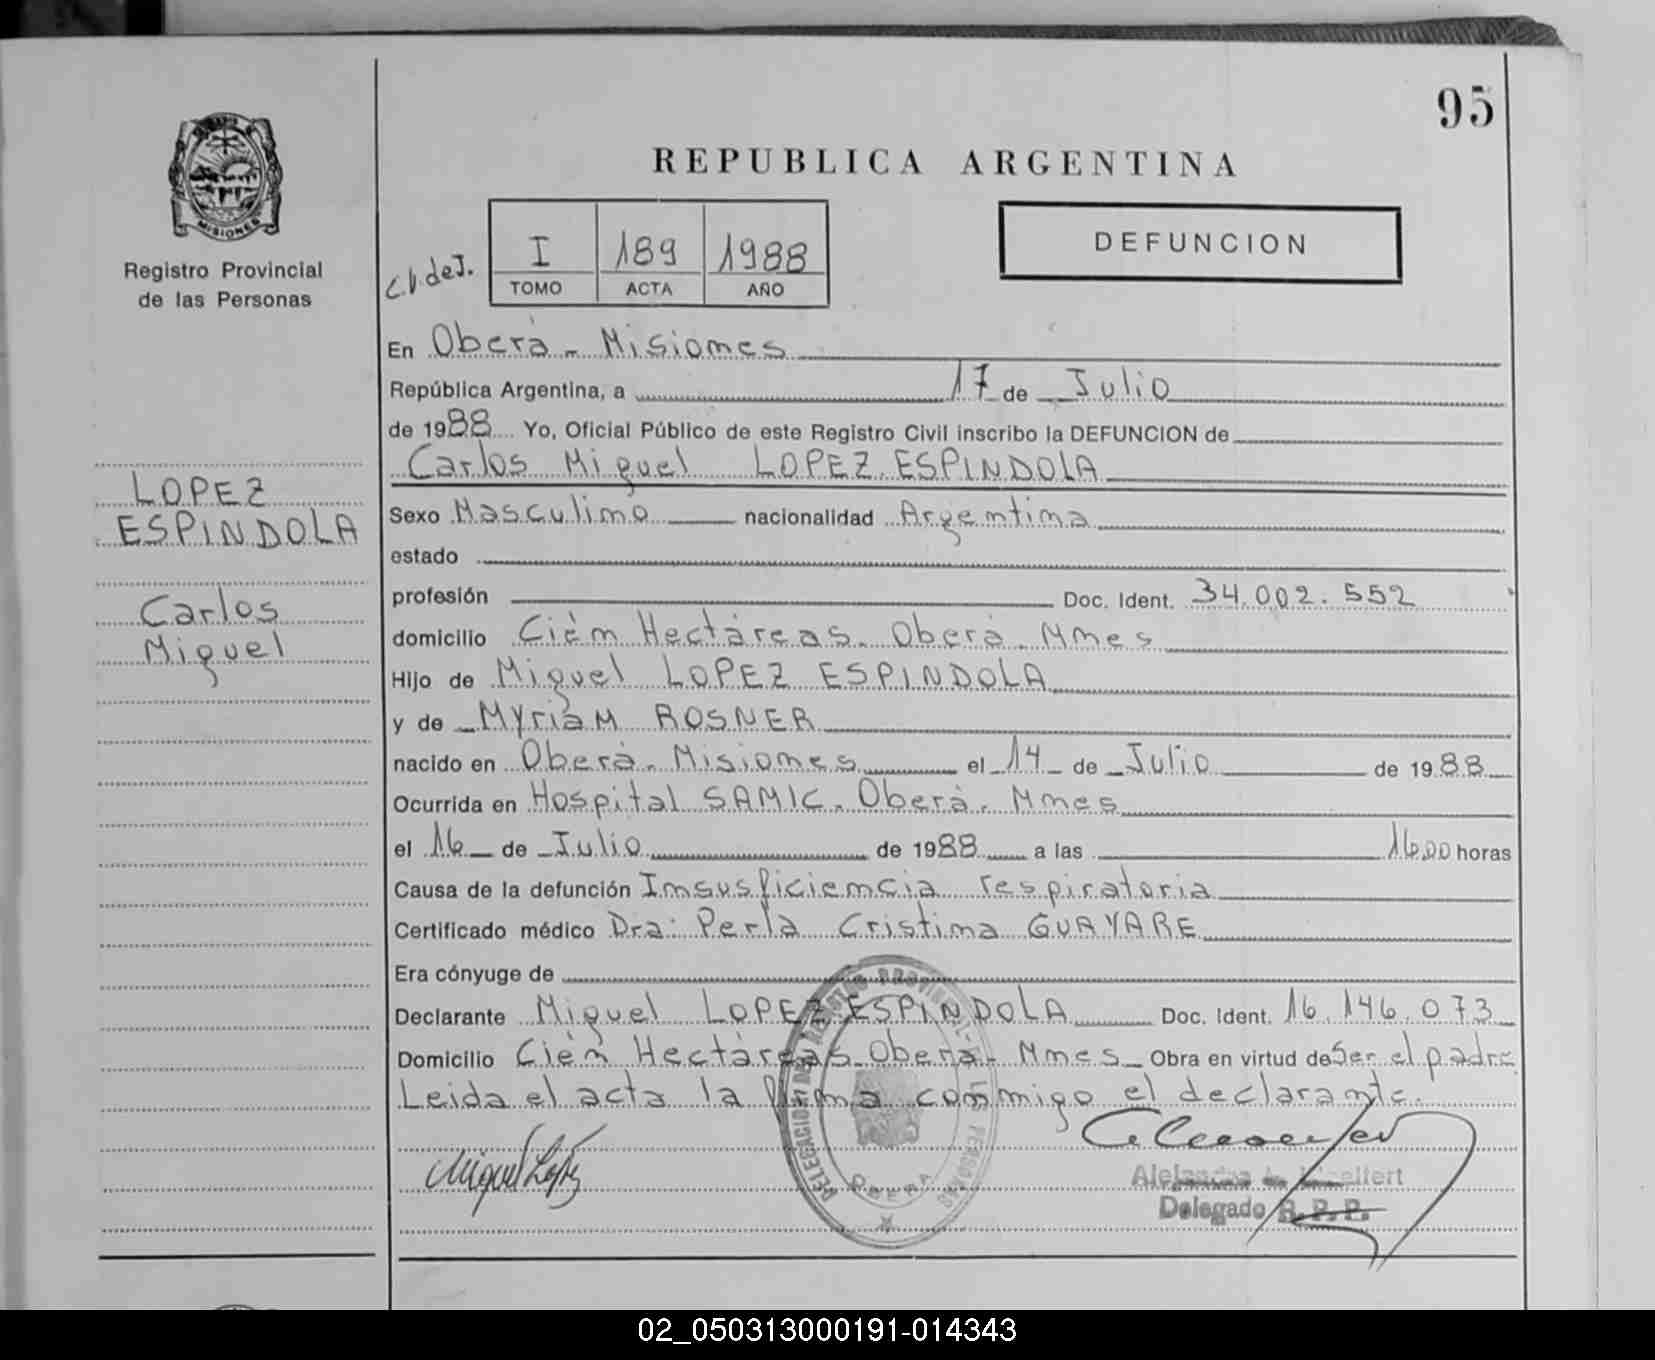 95
REPUBLICA ARGENTINA
MISIONES
Registro Provincial
de las Personas
I 189 1988
TOMO ACTA AÑO
DEFUNCION
En Oberá - Misiones
República Argentina, a 17 de Julio
de 1988 Yo, Oficial Público de este Registro Civil inscribo la DEFUNCION de
Carlos Miguel LOPEZ ESPINDOLA
LOPEZ
ESPINDOLA
Carlos
Miguel
Sexo Masculino nacionalidad Argentina
estado
profesión Doc. Ident. 34.002.552
domicilio Cién Hectáreas. Oberá. Mnes
Hijo de Miguel LOPEZ ESPINDOLA
y de Myriam ROSNER
nacido en Oberá. Misiones el 14 de Julio de 1988
Ocurrida en Hospital SAMIC. Oberá. Mnes
el 16 de Julio de 1988 a las 16.00 horas
Causa de la defunción Insusficiencia respiratoria
Certificado médico Dra: Perla Cristina GUAYARE
Era cónyuge de
Declarante Miguel LOPEZ ESPINDOLA Doc. Ident. 16.146.073
Domicilio Cién Hectáreas. Oberá. Mnes Obra en virtud de Ser el padre
Leida el acta la firma conmigo el declarante.
Miguel López
DELEGACION DEL REGISTRO PROVINCIAL DE LAS PERSONAS
OBERA
Delegado R. P. P.
02_050313000191-014343